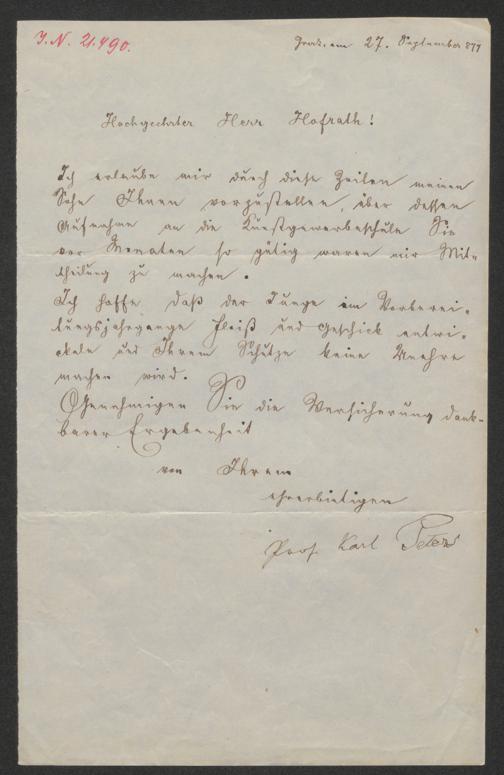 I. N. 21.490.
Graz, am 27. September 877
Hochgeehrter Herr Hofrath!
Ich erlaube mir durch diese Zeilen meinen
Sohn Ihnen vorzustellen, über dessen
Aufnahme an die Kunstgewerbeschule Sie
vor Monaten so gütig waren mir Mit-
theilung zu machen.
Ich hoffe, daß der Junge im Vorberei-
tungsjahrgange Fleiß und Geschick entwi-
ckeln und Ihrem Schutze keine Unehre
machen wird.
Genehmigen Sie die Versicherung dank-
barer Ergebenheit
von Ihrem
ehrerbietigen
Prof. Karl Peters